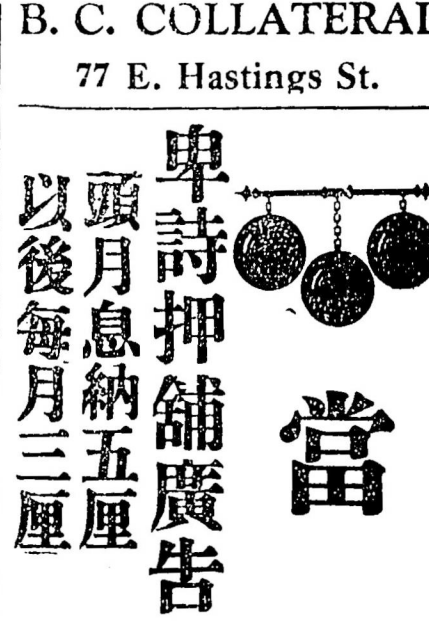 B. C. COLLATERAL
77 E. Hastings St.
當
卑詩押舖廣告
頭月息納五厘
以後每月三厘